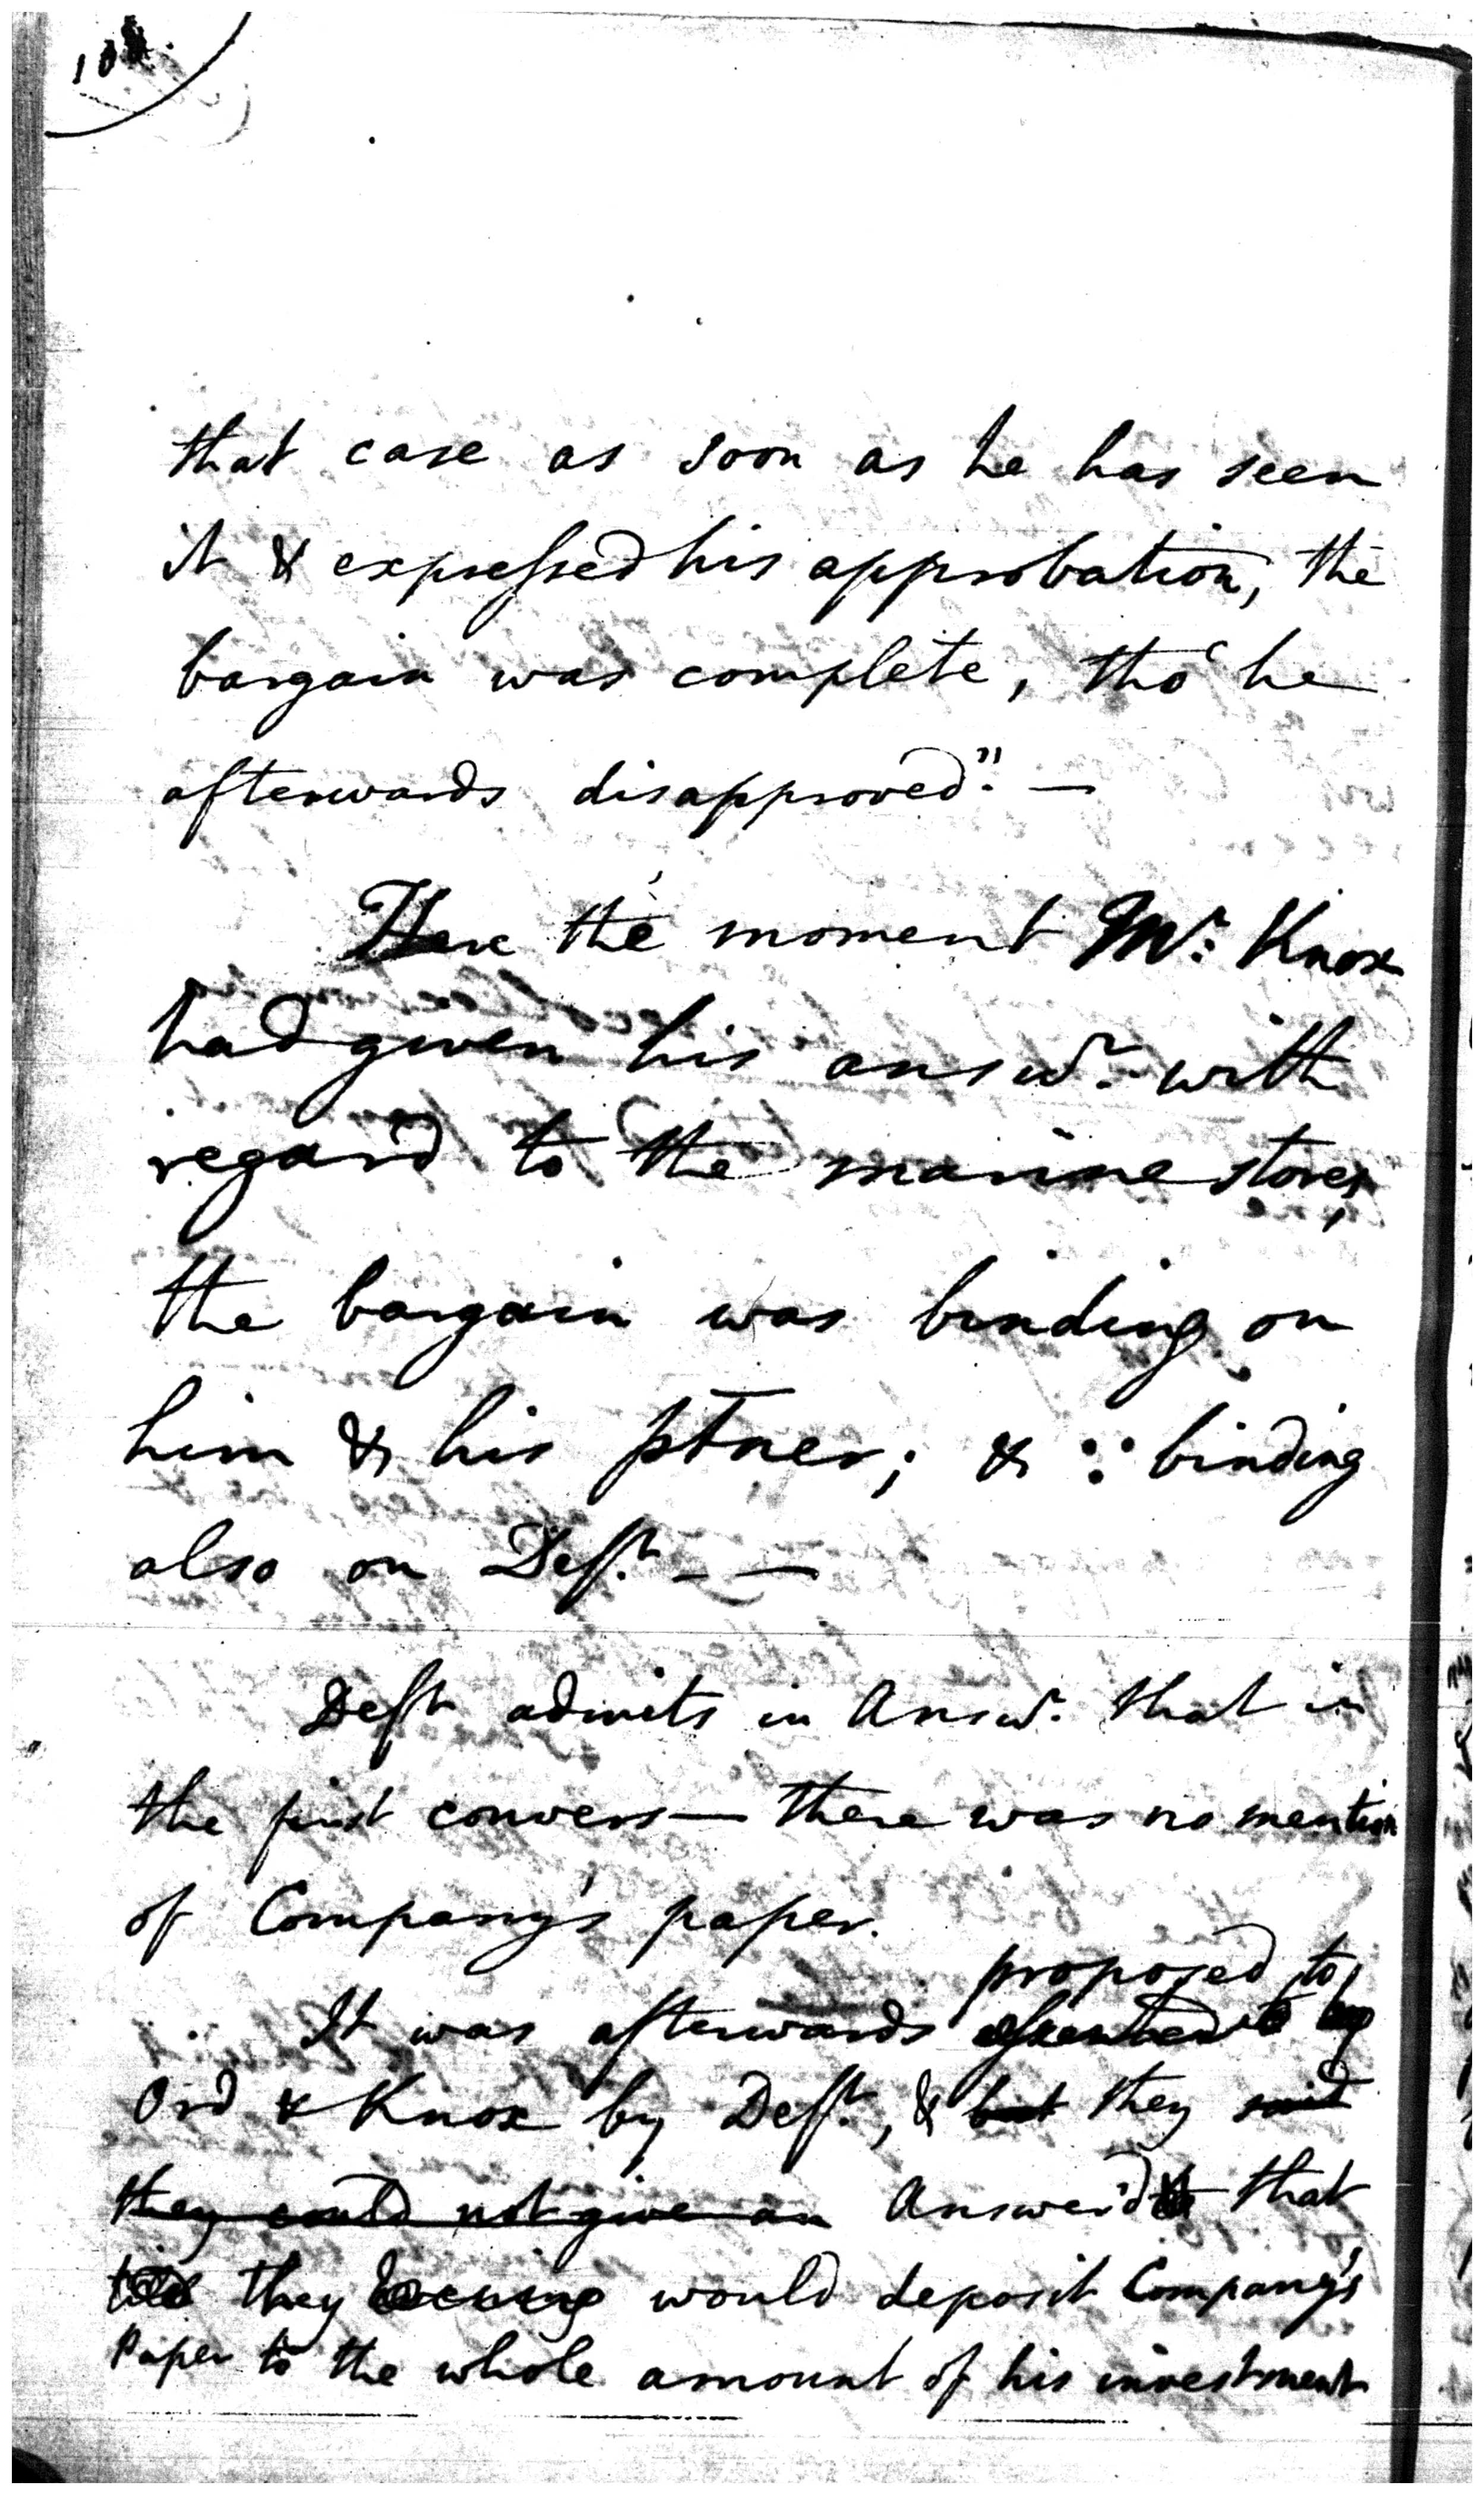 that case as soon as he has seen
it & expressed his approbation, the
bargain was complete, tho' he
afterwards disapproved". —
Here the moment Mr. Knox
had given his answr. with
regard to the marine stores,
the bargain was binding on
him & his ptner; & ∵ binding
also on Deft. - —
Deft admits in Answr. that in
the first convers— there was no mention
of Company's paper.
proposed to
It was afterwards
Ord & Knox by Deft., & but they said
they could not give an Answer'd that
they would deposit Company's
Paper to the whole amount of his investment